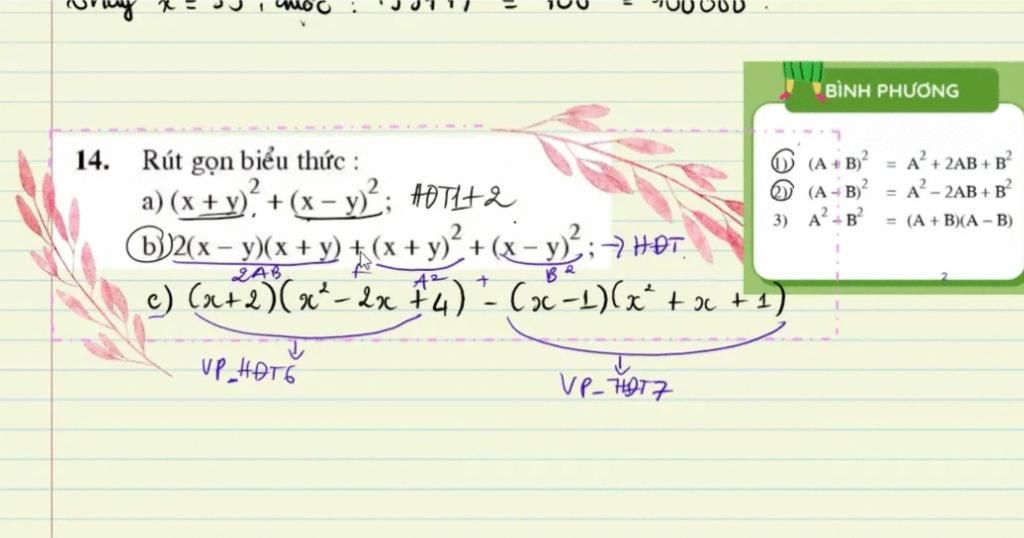 Thay x = 99, được : = 100 = 100000.
BÌNH PHƯƠNG
1) (A + B)² = A² + 2AB + B²
2) (A - B)² = A² - 2AB + B²
3) A² - B² = (A + B)(A - B)
2
14. Rút gọn biểu thức :
a) (x + y)² + (x - y)²; HĐT1+2
b) 2(x - y)(x + y) + (x + y)² + (x - y)²; → HĐT
2AB + A² + B²
c) (x+2)(x² - 2x + 4) - (x - 1)(x² + x + 1)
VP_HĐT6
VP_HĐT7